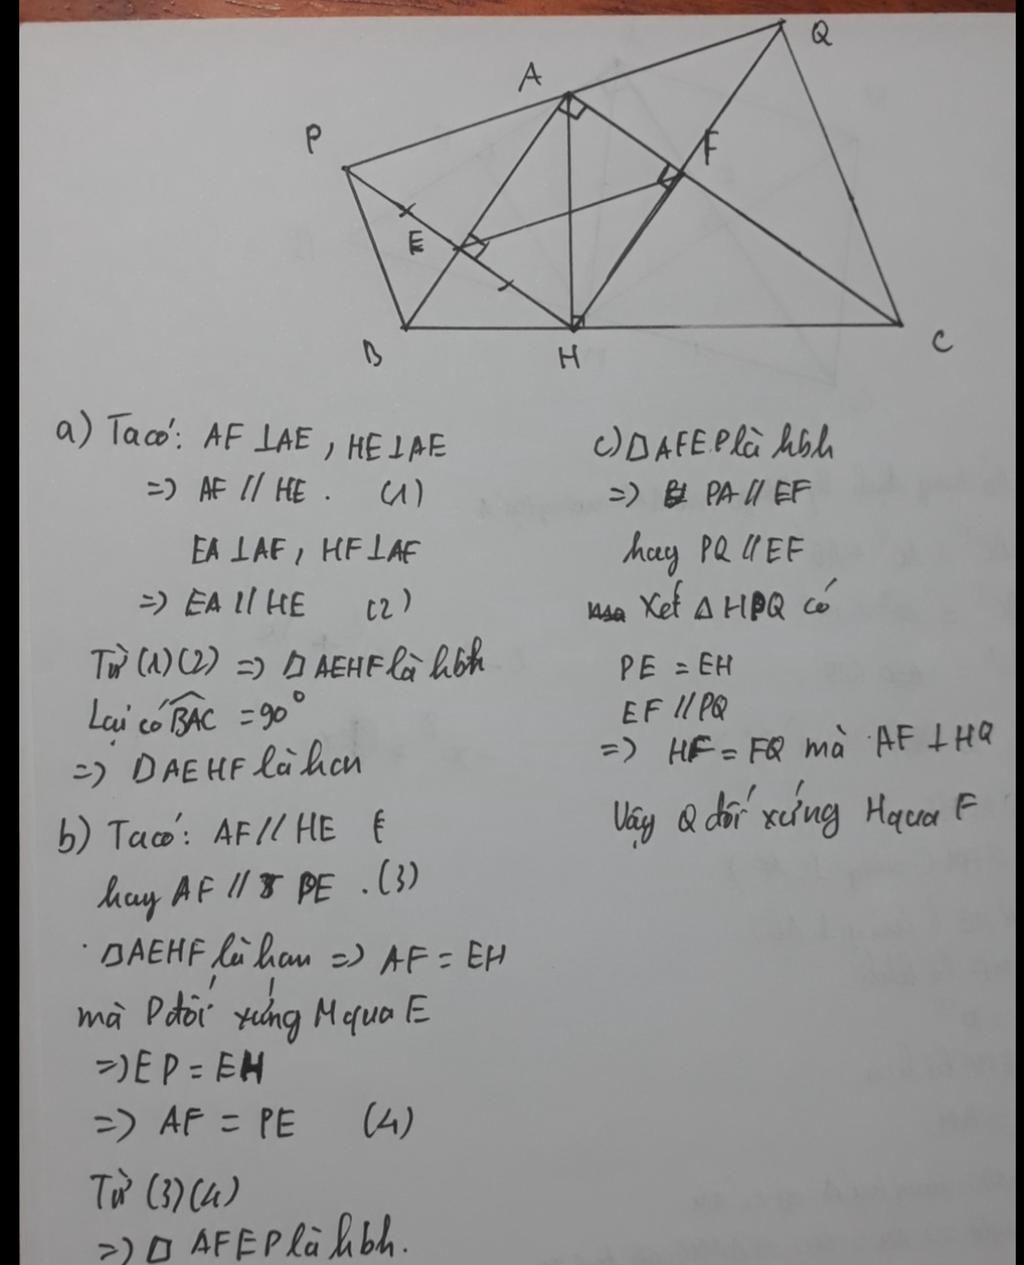 Q
A
P
F
E
B
H
C
a) Ta có: AF ⊥ AE, HE ⊥ AE
=> AF // HE. (1)
EA ⊥ AF, HF ⊥ AF
=> EA // HE (2)
Từ (1)(2) => □ AEHF là hbh
Lại có \widehat{BAC} = 90°
=> □ AEHF là hcn
b) Ta có: AF // HE
hay AF // PE. (3)
□ AEHF là hcn => AF = EH
mà P đối xứng H qua E
=> EP = EH
=> AF = PE (4)
Từ (3)(4)
=> □ AFEP là hbh.
c) □ AFEP là hbh
=> PA // EF
hay PQ // EF
Xét △ HPQ có
PE = EH
EF // PQ
=> HF = FQ mà AF ⊥ HQ
Vậy Q đối xứng H qua F